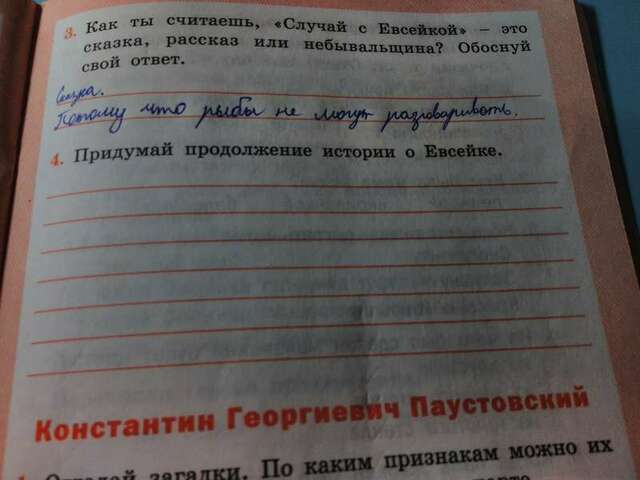 3. Как ты считаешь, «Случай с Евсейкой» – это
сказка, рассказ или небывальщина? Обоснуй
свой ответ.
Сказка.
Потому что рыбы не могут разговаривать.
4. Придумай продолжение истории о Евсейке.
Константин Георгиевич Паустовский
1. Отгадай загадки. По каким признакам можно их